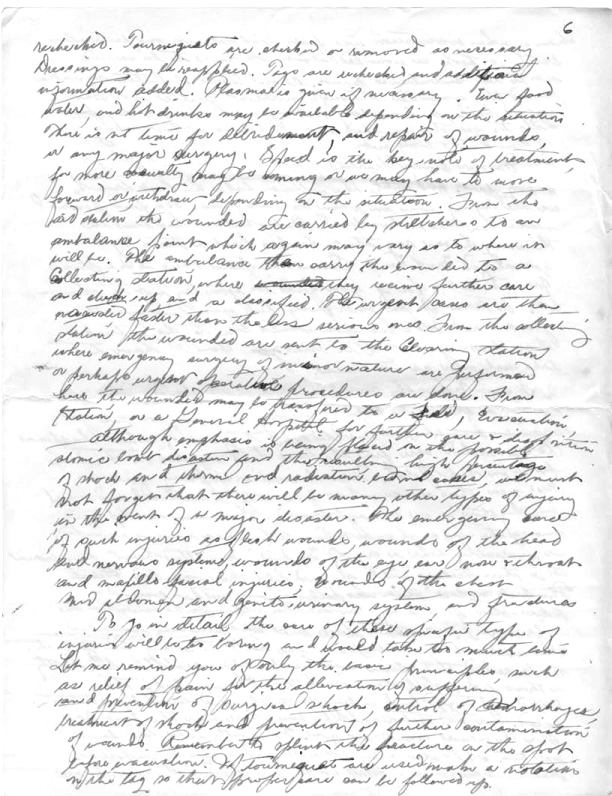 6
rechecked. Tourniquets are checked or removed as necessary.
Dressings may be reapplied. Tags are rechecked and additional
information added. Plasma is given if necessary. Even food
water, and hot drinks may be available depending on the situation
There is not time for debridement, and repair of wounds,
or any major surgery. Speed is the key note of treatment,
for more casualty may be coming or we may have to move
forward or withdraw, depending on the situation. From the
aid station the wounded are carried by to an
ambulance point which again may vary as to where it
will be. The ambulance then carry the wounded to a
Collecting station, where wounded they receive further care
and check up and classified. The urgent cases are then
faster than the less serious ones. From the collecting
station the wounded are sent to the Clearing Station
where emergency surgery of minor nature are performed
or perhaps urgent operative procedures are done. From
here the wounded may be transferred to a Evacuation,
Station, or a General Hospital for further care &
Although emphasis is being placed on the possible
atomic bomb disasters and the resulting high percentage
of shock and thermo and radiation cases, we must
not forget that there will be many other types of injury
in the event of a major disaster. The emergency care
of such injuries as flesh wounds, wounds of the head
and nervous systems, wounds of the eye ear nose & throat
and maxillo facial injuries, wounds of the chest
and abdomen and genito urinary system, and fractures
To go in detail the care of these specific type of
injuries will be too boring and would take too much time
Let me remind you of only the basic principles, such
as relief of pain for the alleviation of suffering
and prevention of surgical shock, control of hemorrhages,
treatment of shock and prevention of further contamination
of wounds. Remember to splint the fracture on the spot
before evacuation. If tourniquets are used make a notation
on the tag so that proper care can be followed up.